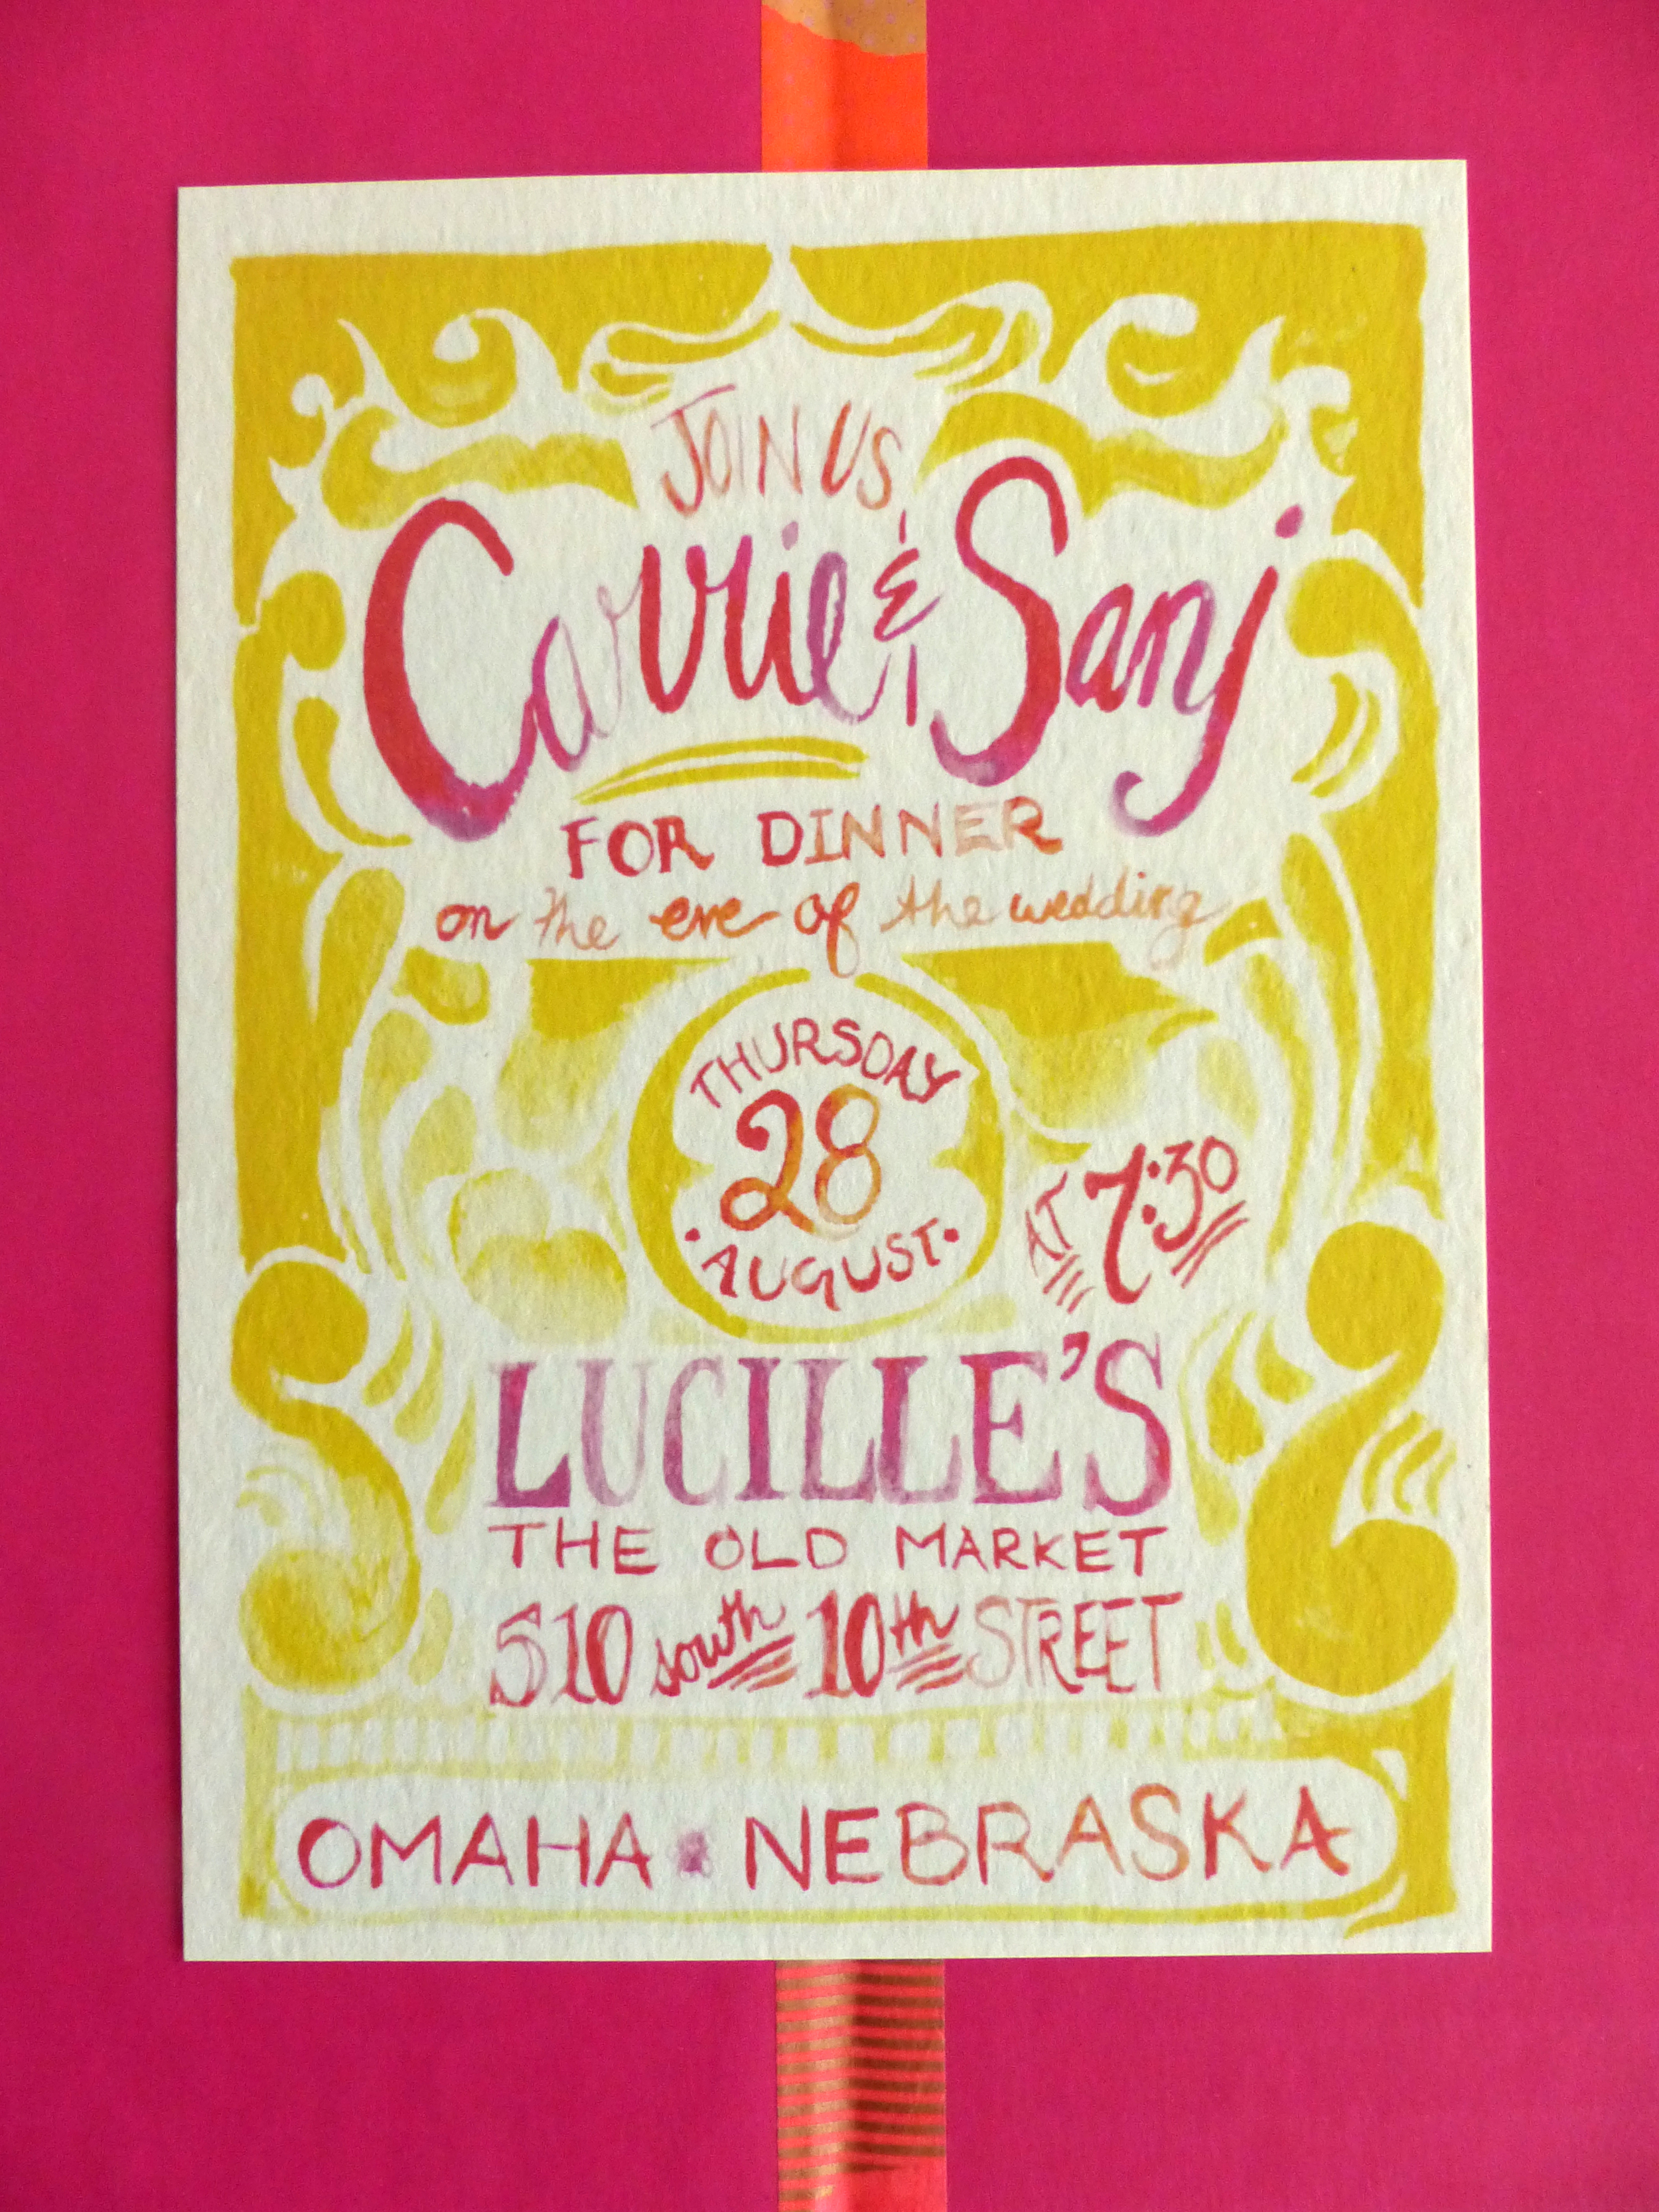 JOIN US
Carrie & Sanj
FOR DINNER
on the eve of the wedding
THURSDAY
28
AUGUST
AT 7:30
LUCILLE'S
THE OLD MARKET
510 south 10th STREET
OMAHA NEBRASKA